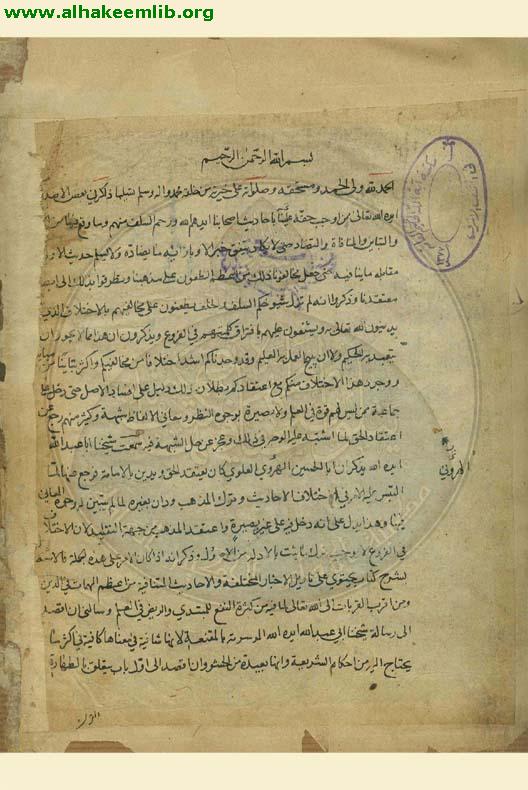 www.alhakeemlib.org
بسم الله الرحمن الرحيم
الحمد لله ولي الحمد ومستحقه وصلواته على خيرته من خلقه محمد واله وسلم تسليما ذكرني بعض الاصدقاء
ايده الله تعالى من اوجب حقه علينا باحاديث اصحابنا ايدهم الله ورحم السلف منهم وما وقع فيها من
والتباين والمنافاة والتضاد حتى لا يكاد يتفق خبر الا وبازائه ما يضاده ولا يسلم حديث الا وفي
مقابله ما ينافيه حتى جعل مخالفونا ذلك من اعظم الطعون على مذهبنا وتطرقوا بذلك الى ابطال
معتقدنا وذكروا انه لم تزل شيوخكم السلف والخلف يطعنون على مخالفيهم بالاختلاف الذي
يدينون الله تعالى به ويشنعون عليهم بافتراق كلمتهم في الفروع ويذكرون ان هذا مما لا يجوز ان
يتعبد به الحكيم ولا ان يبيح العمل به العليم وقد وجدناكم اشد اختلافا من مخالفيكم واكثر تباينا من
ووجود هذا الاختلاف منكم مع اعتقادكم بطلان ذلك دليل على افساد الاصل حتى دخل على
جماعة ممن ليس لهم قوة في العلم ولا بصيرة بوجوه النظر ومعاني الالفاظ شبهة وكثير منهم رجع عن
اعتقاد الحق لما اشتبه عليه الوجه في ذلك وعجز عن حل الشبهة فيه سمعت شيخنا ابا عبد الله
ايده الله يذكر ان ابا الحسين الهروي العلوي كان يعتقد الحق ويدين بالامامة فرجع عنها لما
التبس عليه الامر في اختلاف الاحاديث وترك المذهب ودان بغيره لما لم يتبين له وجوه المعاني
فيها وهذا يدل على انه دخل فيه على غير بصيرة واعتقد المذهب من جهة التقليد لان الاختلاف
في الفروع لا يوجب ترك ما ثبت بالادلة من الاصول وذكر انه اذا كان الامر على هذه الجملة فالاشتغال
بشرح كتاب يحتوي على تاويل الاخبار المختلفة والاحاديث المتنافية من اعظم المهمات في الدين
ومن اقرب القربات الى الله تعالى لما فيه من كثرة النفع للمبتدي والريض في العلم وسالني ان اقصد
الى رسالة شيخنا ابي عبد الله ايده الله الموسومة بالمقنعة لانها شافية في معناها كافية في اكثر ما
يحتاج اليه من احكام الشريعة وانها بعيدة من الحشو وان اقصد الى اول باب يتعلق بالطهارة